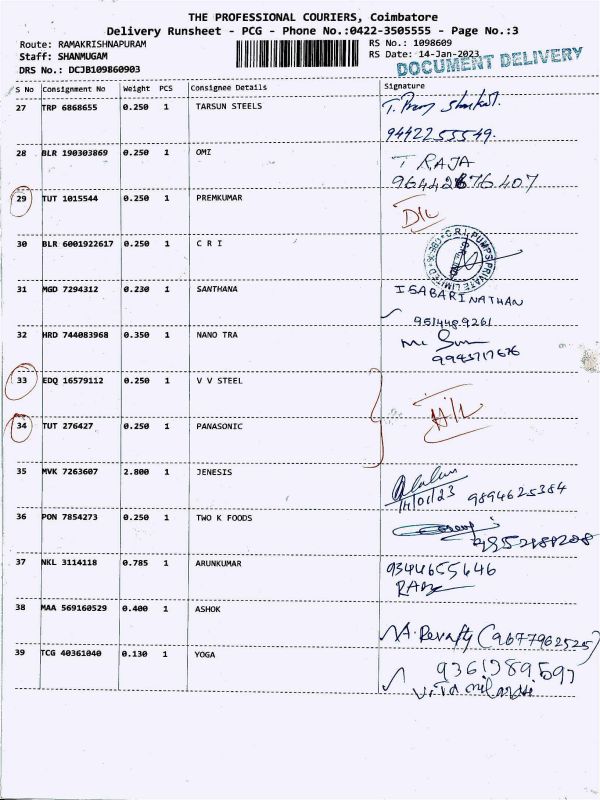 THE PROFESSIONAL COURIERS, Coimbatore
Delivery Runsheet - PCG - Phone No.:0422-3505555 - Page No.:3
Route: RAMAKRISHNAPURAM RS No.: 1098609
Staff: SHANMUGAM RS Date: 14-Jan-2023
DRS No.: DCJB109860903 DOCUMENT DELIVERY
S No Consignment No Weight PCS Consignee Details Signature
27 TRP 6868655 0.250 1 TARSUN STEELS
9442255549.
28 BLR 190303869 0.250 1 OMI T RAJA
29 TUT 1015544 0.250 1 PREMKUMAR
30 BLR 6001922617 0.250 1 C R I C.R.I. PUMPS PRIVATE LIMITED
31 MGD 7294312 0.230 1 SANTHANA ISABARINATHAN
9514489261
32 HRD 744083968 0.350 1 NANO TRA
33 EDQ 16579112 0.250 1 V V STEEL
34 TUT 276427 0.250 1 PANASONIC
35 MVK 7263607 2.800 1 JENESIS
14/01/23 9894625384
36 PON 7854273 0.250 1 TWO K FOODS
37 NKL 3114118 0.785 1 ARUNKUMAR 9344655646
38 MAA 569160529 0.400 1 ASHOK
A. Revathy (9677962525)
39 TCG 40361040 0.130 1 YOGA